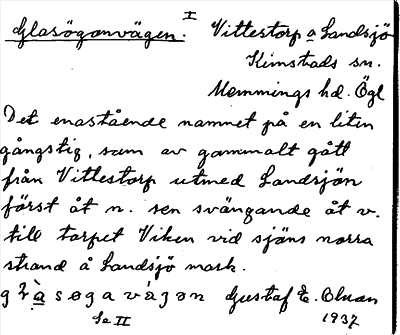 Glasögonvägen. I Vittestorp å Landsjö
Kimstads sn.
Memmings hd. Ögl
Det enastående namnet på en liten
gångstig, som av gammalt gått
från Vittestorp utmed Landsjön
först åt n. sen svängande åt v.
till torpet Viken vid sjöns norra
strand å Landsjö mark.
Gustaf E. Olsson
Se II 1937